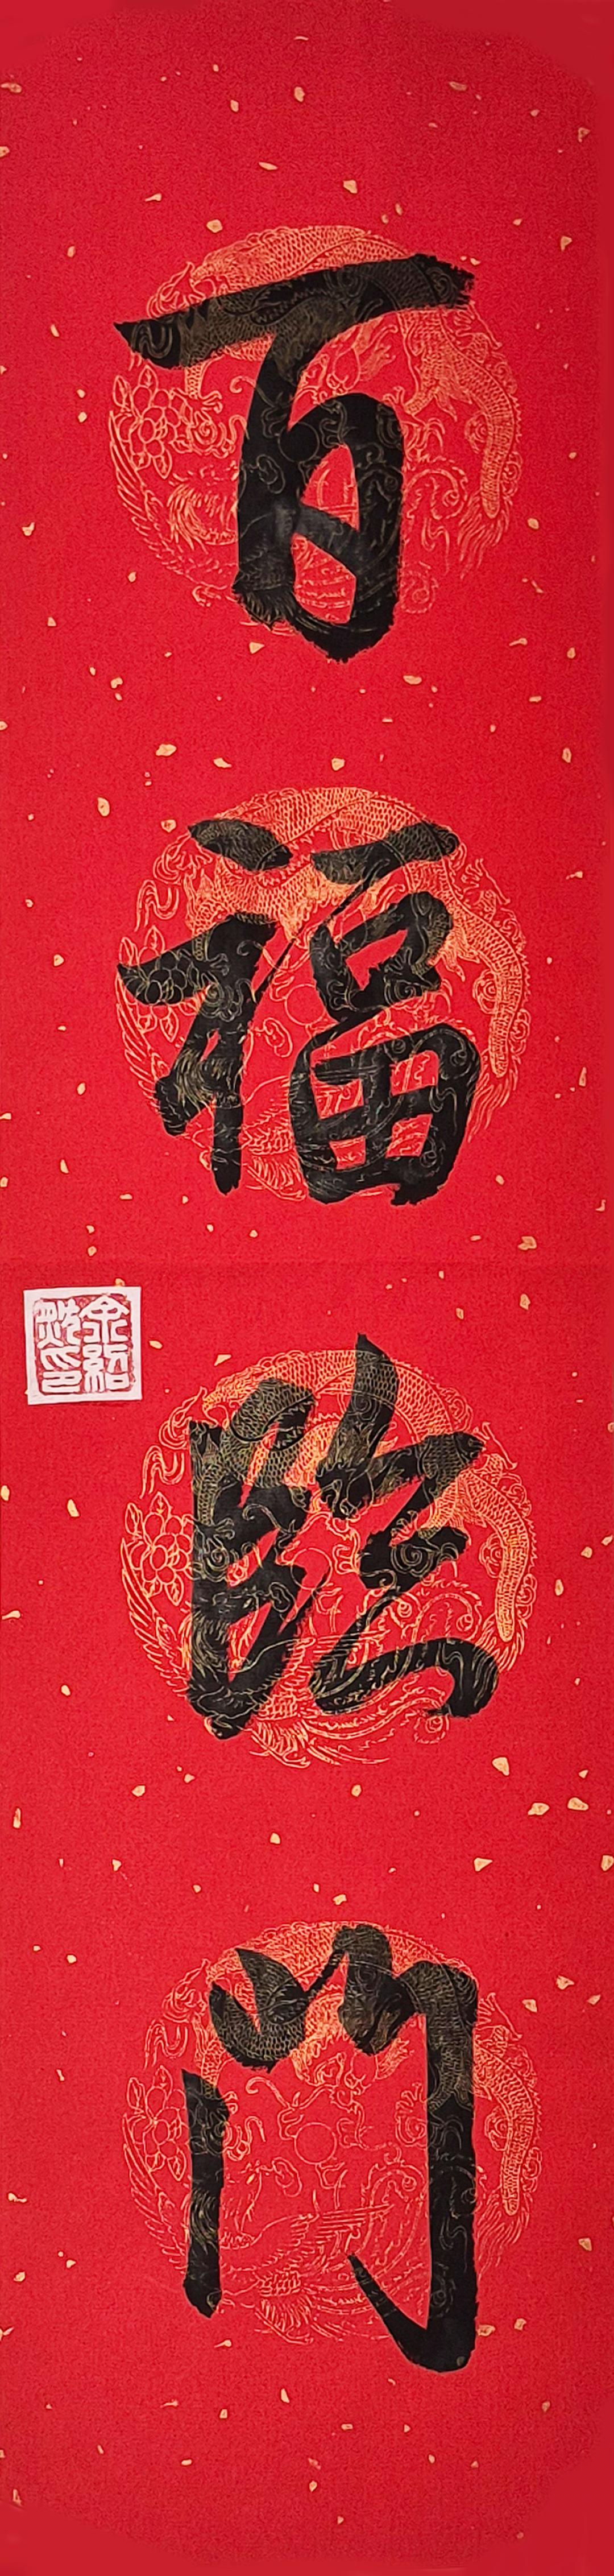 百福臨門